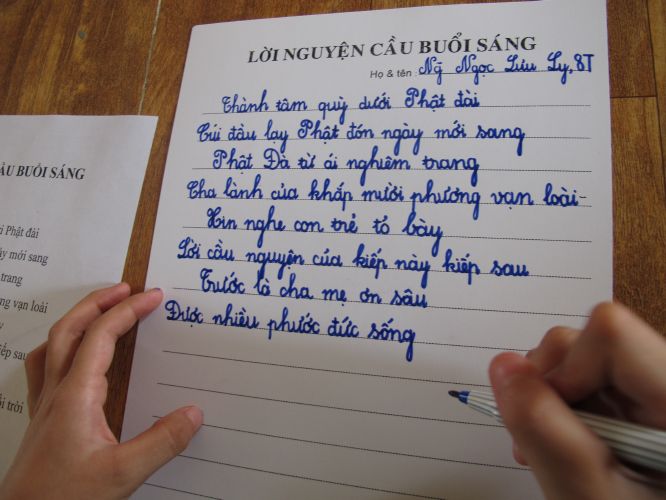 LỜI NGUYỆN CẦU BUỔI SÁNG
Họ & tên: Ng̃ Ngọc Lưu Ly, 8T
Thành tâm quỳ dưới Phật đài
Cúi đầu lạy Phật đón ngày mới sang
Phật Đà từ ái nghiêm trang
Cha lành của khắp mười phương vạn loài
Xin nghe con trẻ tỏ bày
Lời cầu nguyện của kiếp này kiếp sau
Trước là cha mẹ ơn sâu
Được nhiều phước đức sống
ẦU BUỔI SÁNG
i Phật đài
ày mới sang
trang
ng vạn loài
y
iếp sau
i trời